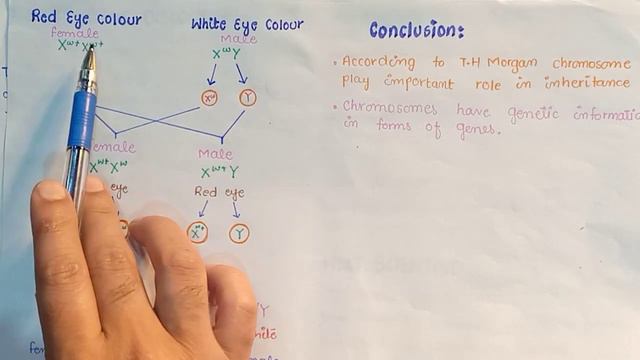 Red Eye colour
White Eye Colour
female
Male
X^w+ X^w+
X^w Y
X^w
Y
female
Male
X^w+ X^w
X^w+ Y
eye
Red eye
X^w+
Y
Conclusion:
• According to T.H Morgan chromosome
play important role in inheritance
• Chromosomes have genetic informatio
in forms of genes.